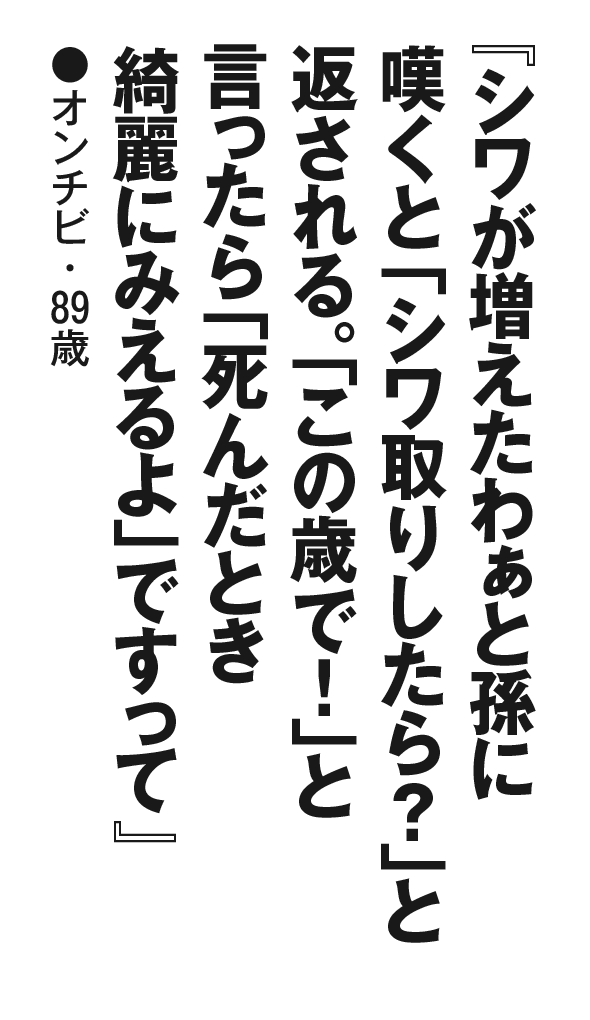 『シワが増えたわぁと孫に
嘆くと「シワ取りしたら?」と
返される。「この歳で!」と
言ったら「死んだとき
綺麗にみえるよ」ですって』
●オンチビ・89歳